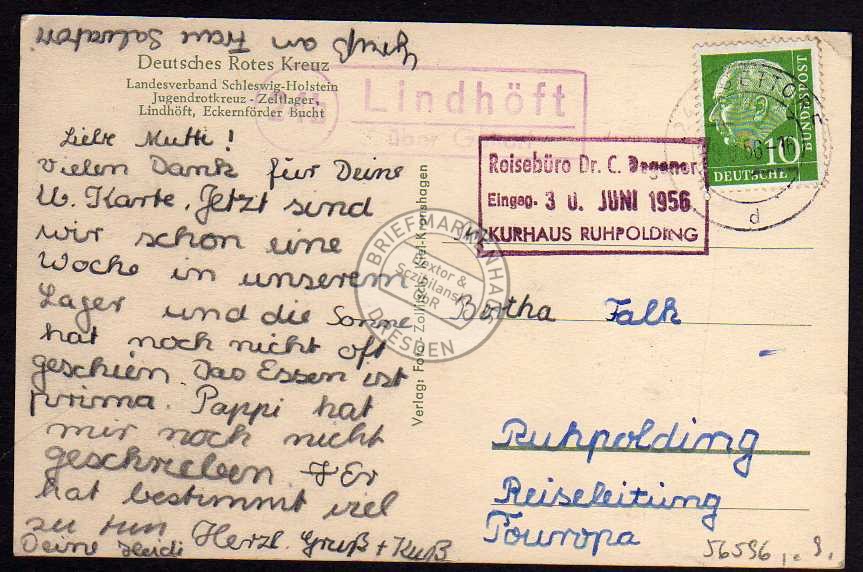 Gruß an Frau Salvatori
Deutsches Rotes Kreuz
Landesverband Schleswig-Holstein
Jugendrotkreuz - Zeltlager,
Lindhöft, Eckernförder Bucht
Liebe Mutti!
Vielen Dank für Deine
lb. Karte. Jetzt sind
wir schon eine
Woche in unserem
Lager und die Sonne
hat noch nicht oft
geschien. Das Essen ist
prima. Pappi hat
mir noch nicht
geschrieben. Er
hat bestimmt viel
zu tun. Herzl. Gruß + Kuß
Deine Heidi
Verlag: Foto-
24b
Lindhöft
über
Reisebüro Dr. C. Degener
Eingeg. 3 0. JUNI 1956
KURHAUS RUHPOLDING
10
DEUTSCHE
BUNDESPOST
d
Bertha Falk
Ruhpolding
Reiseleitung
Touropa
BRIEFMARKENHAUS
Dextor &
Sczibilanski
GbR
DRESDEN
56596